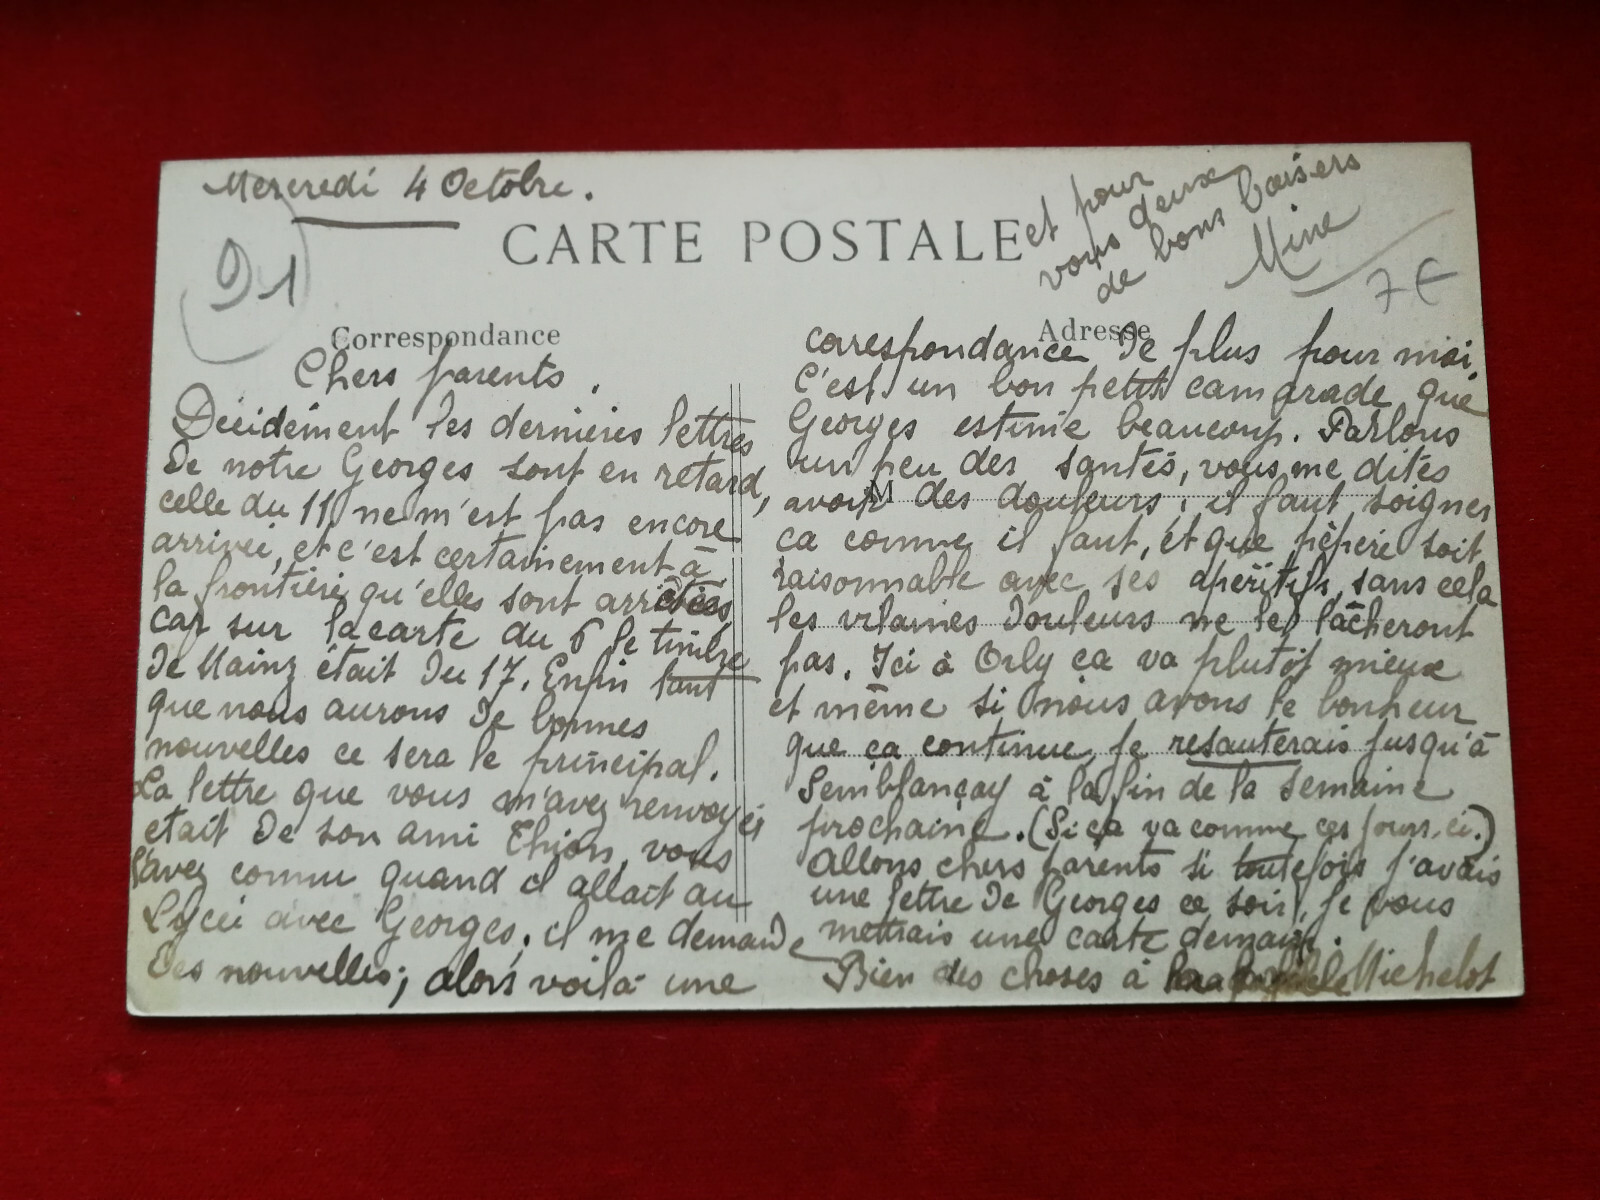 Mercredi 4 Octobre.
91
CARTE POSTALE
et pour
vous deux
de bons baisers
Mine
7 €
Correspondance
Chers parents.
Décidément les dernières lettres
de notre Georges sont en retard,
celle du 11 ne m'est pas encore
arrivée, et c'est certainement à
la frontière qu'elles sont arrêtées,
car sur la carte du 6 le timbre
de Mainz était du 17. Enfin tant
que nous aurons de bonnes
nouvelles ce sera le principal.
La lettre que vous m'avez renvoyée
était de son ami Thion, vous
l'avez connu quand il allait au
Lycée avec Georges, il me demande
des nouvelles; alors voilà une
Adresse
correspondance de plus pour moi,
C'est un bon petit camarade que
Georges estime beaucoup. Parlons
un peu des santés, vous me dites
M
avoir des douleurs, il faut soigner
ça comme il faut, et que pépère soit
raisonnable avec ses apéritifs, sans cela
les vilaines douleurs ne le lâcheront
pas. Ici à Orly ça va plutôt mieux
et même si nous avons le bonheur
que ça continue, je resauterais jusqu'à
Semblançay à la fin de la semaine
prochaine. (Si ça va comme ces jours-ci.)
Allons chers parents si toutefois j'avais
une lettre de Georges ce soir, je vous
mettrais une carte demain.
Bien des choses à Michelot